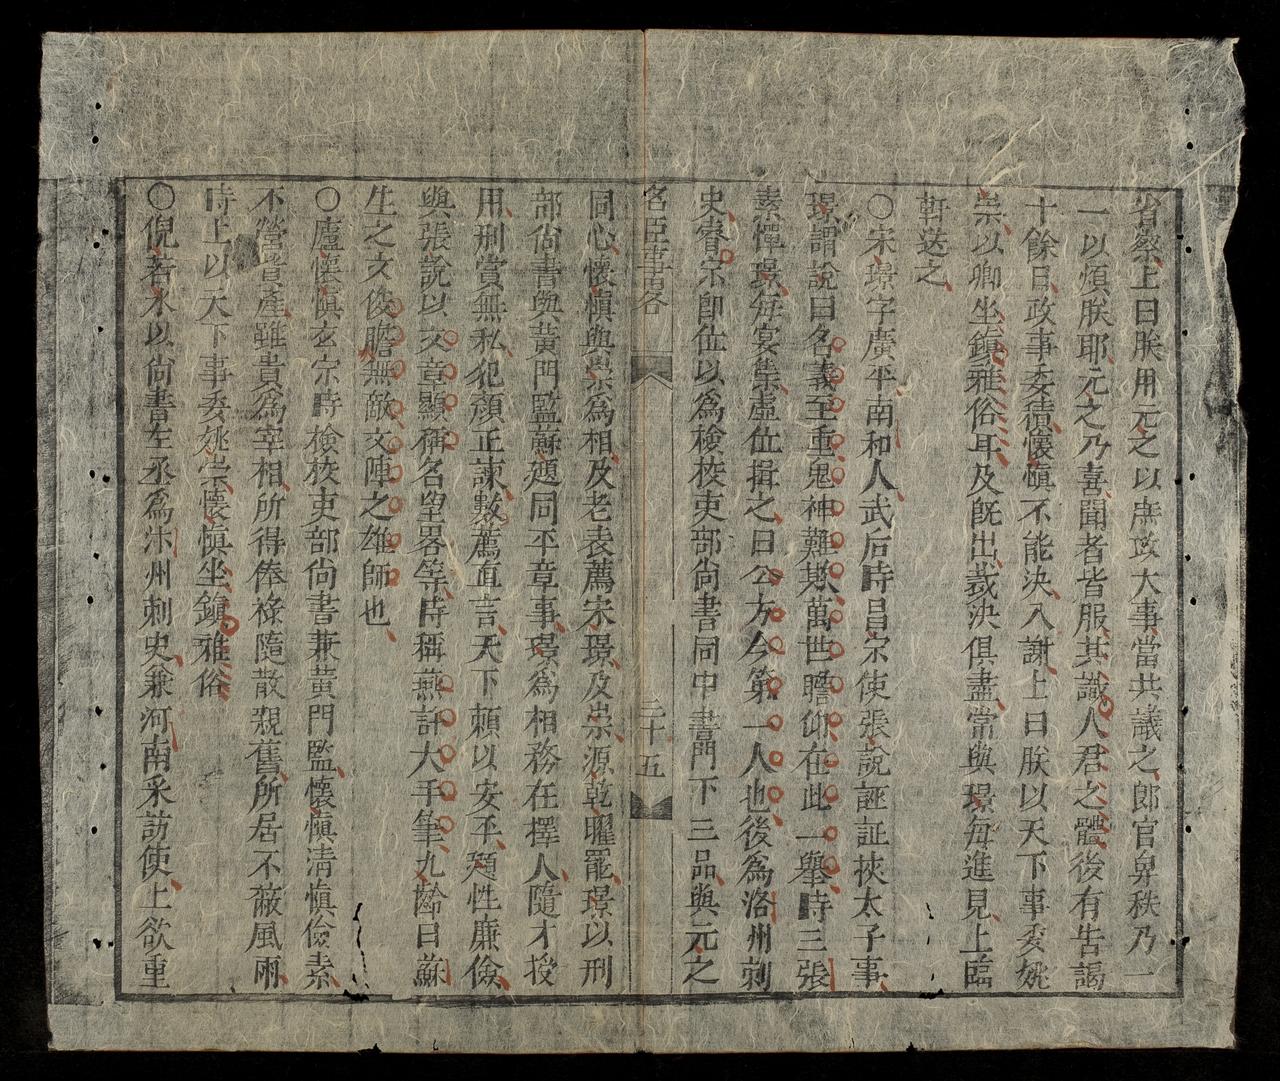 省察上曰朕用元之以庶政大事當共議之郎官卑秩乃一
一以煩朕耶元之乃喜聞者皆服其識人君之體後有告謁
十餘日政事委積懷愼不能決入謝上曰朕以天下事委姚
崇以卿坐鎮雅俗耳及旣出裁決俱盡常與璟每進見上臨
軒送之
〇宋璟字廣平南和人武后時昌宗使張說誣証挾太子事
璟謂說曰名義至重鬼神難欺萬世瞻仰在此一舉時三張
素憚璟每宴集虛位揖之曰公方今第一人也後爲洛州刺
史睿宗卽位以爲檢校吏部尙書同中書門下三品與元之
名臣畧
三十五
同心懷愼與崇爲相及老表薦宋璟及崇源乾曜罷璟以刑
部尙書與黃門監蘇頲同平章事璟爲相務在擇人隨才授
用刑賞無私犯顏正諫數薦直言天下賴以安平頲性廉儉
與張說以文章顯稱名望畧等時稱燕許大手筆九齡曰蘇
生之文俊贍無敵文陣之雄師也
〇盧懷愼玄宗時檢校吏部尙書兼黃門監懷愼清愼儉素
不營貲產雖貴爲宰相所得俸祿隨散親舊所居不蔽風雨
時上以天下事委姚崇懷愼坐鎮雅俗
〇倪若水以尙書左丞爲汴州刺史兼河南采訪使上欲重